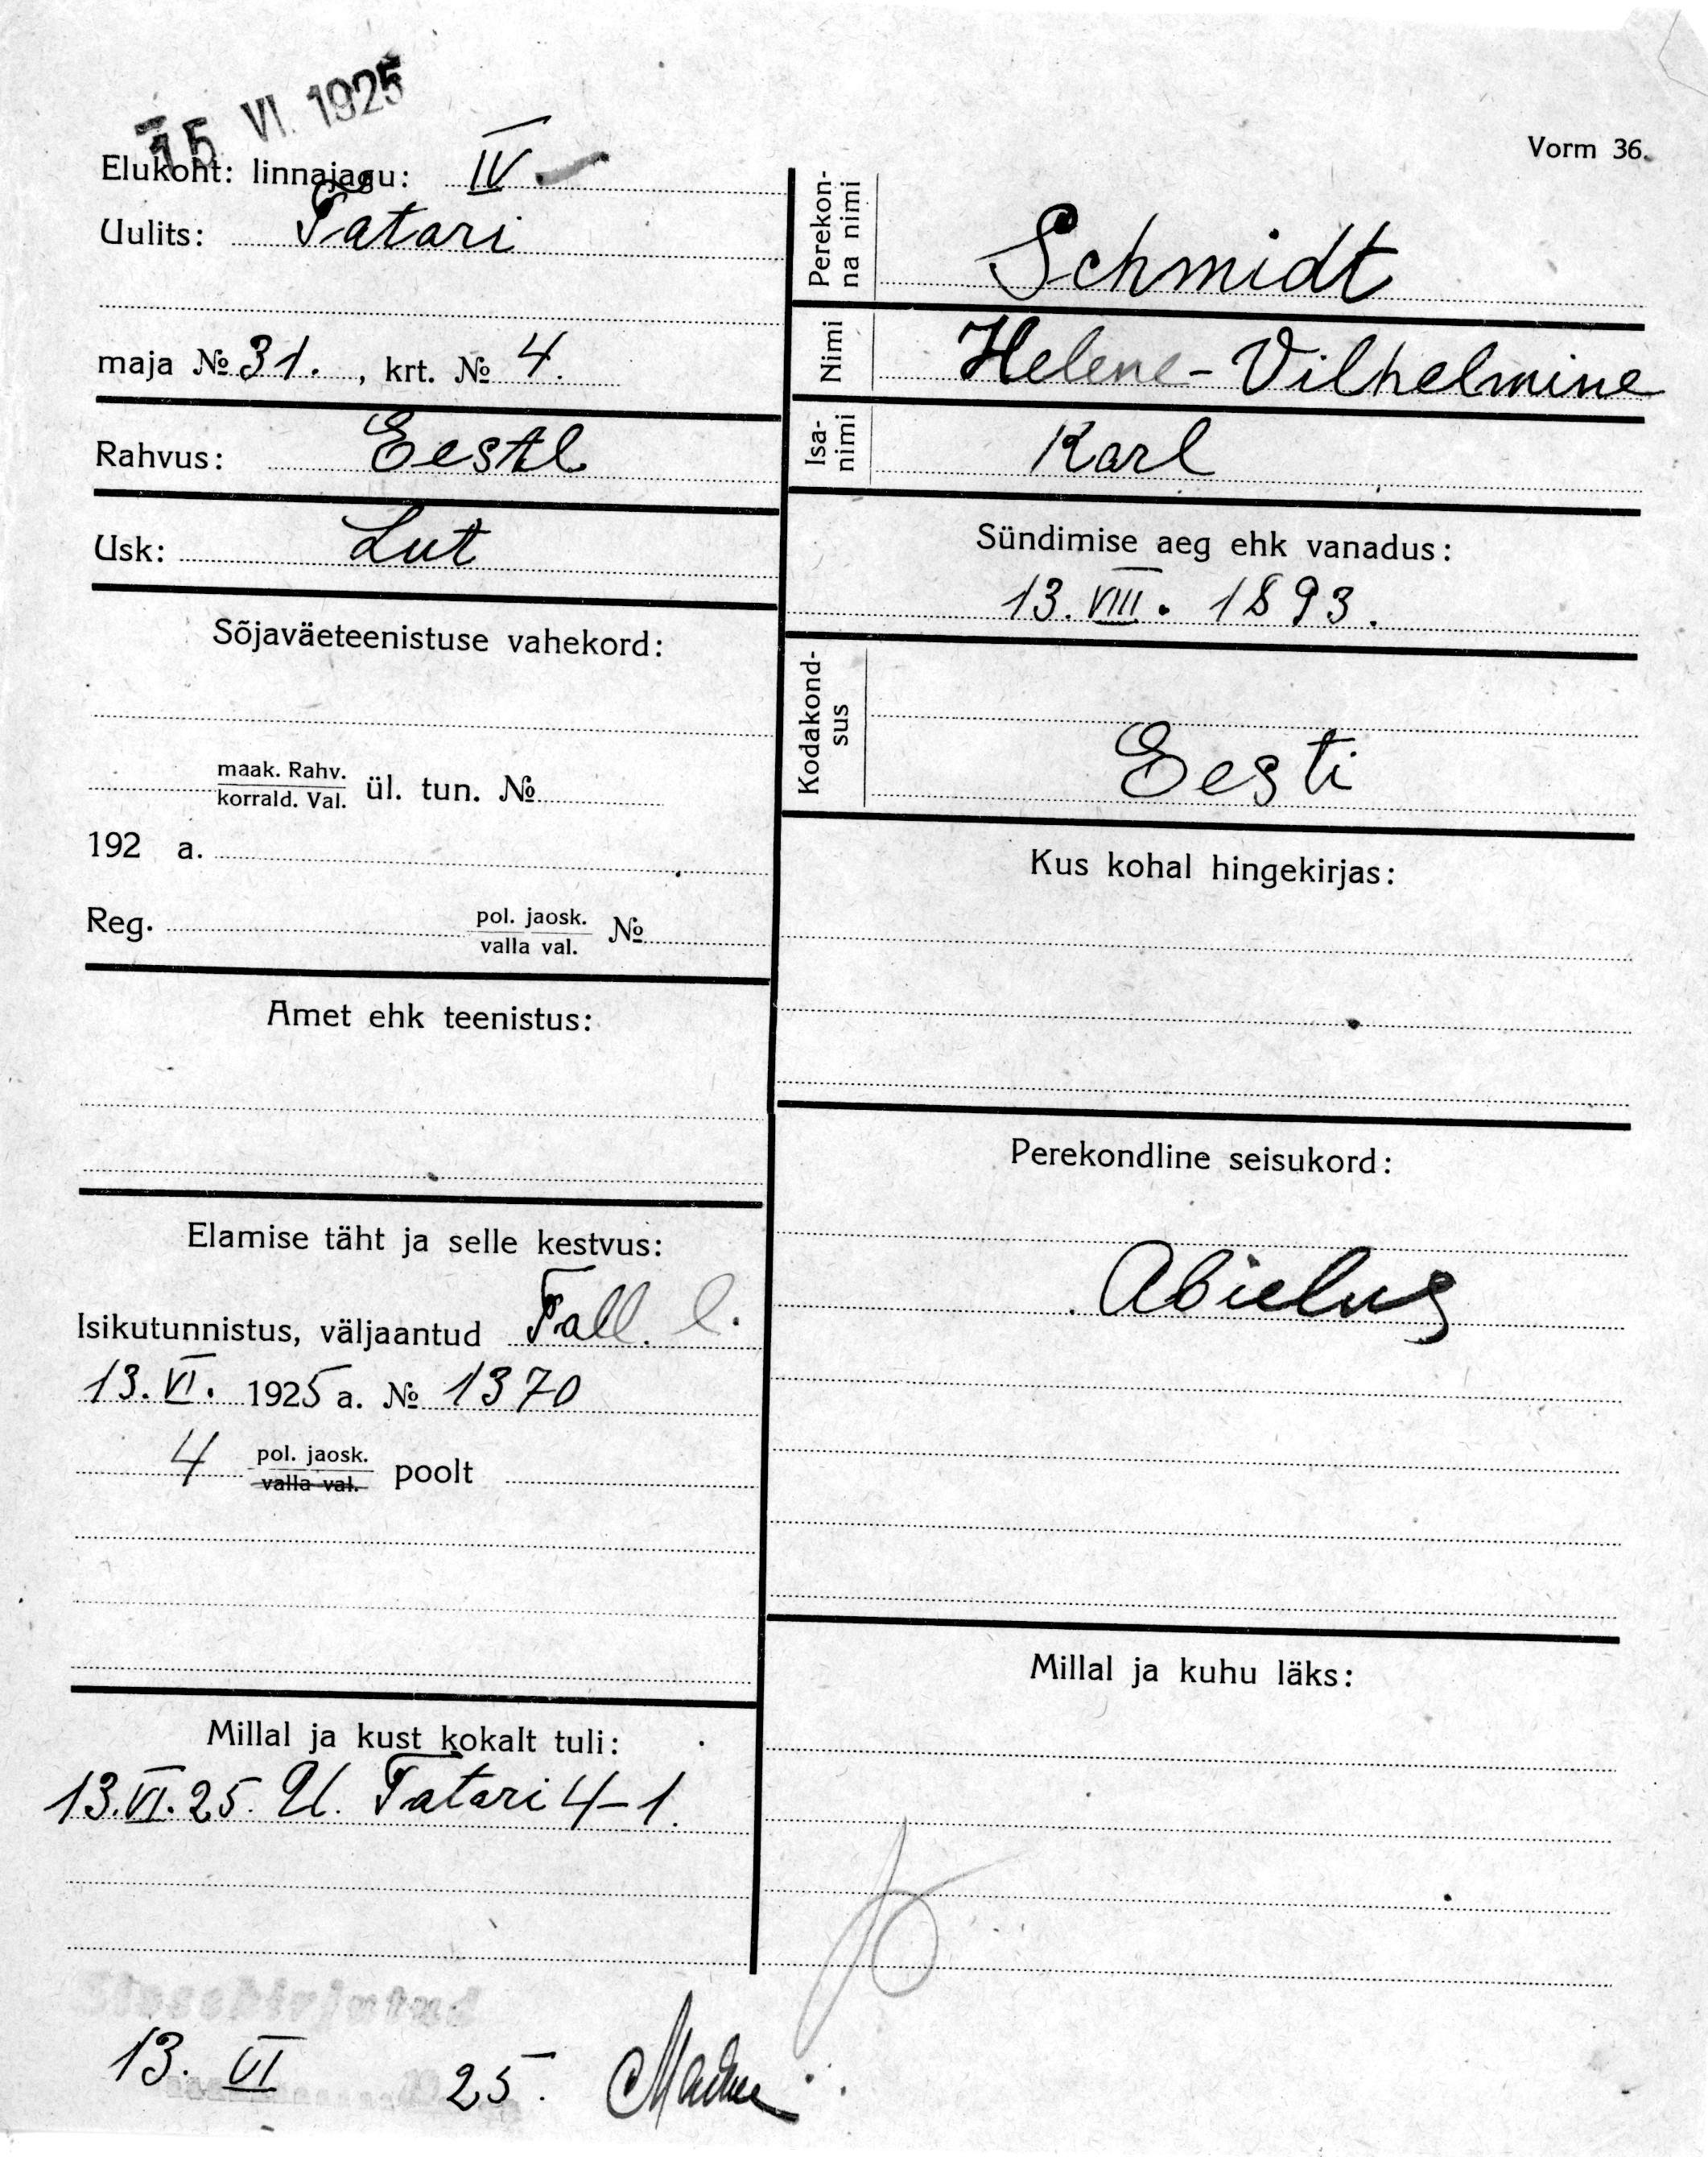 15 VI. 1925
Vorm 36.
Elukoht: linnajagu: IV
Uulits: Tatari
maja № 31. , krt. № 4.
Rahvus: Eestl.
Usk: Lut
Sõjaväeteenistuse vahekord:
maak. Rahv.
korrald. Val. ül. tun. №
192 a.
Reg. pol. jaosk.
valla val. №
Amet ehk teenistus:
Elamise täht ja selle kestvus:
Isikutunnistus, väljaantud Tall. l.
13. VI. 1925 a. № 1370
4 pol. jaosk.
valla val. poolt
Millal ja kust kokalt tuli:
13.VI.25. U. Tatari 4-1.
Perekon-
na nimi Schmidt
Nimi Helene-Vilhelmine
Isa-
nimi Karl
Sündimise aeg ehk vanadus:
13. VIII. 1893.
Kodakond-
sus Eesti
Kus kohal hingekirjas:
Perekondline seisukord:
Abielus
Millal ja kuhu läks:
Sissekirjutud
13. VI 25.